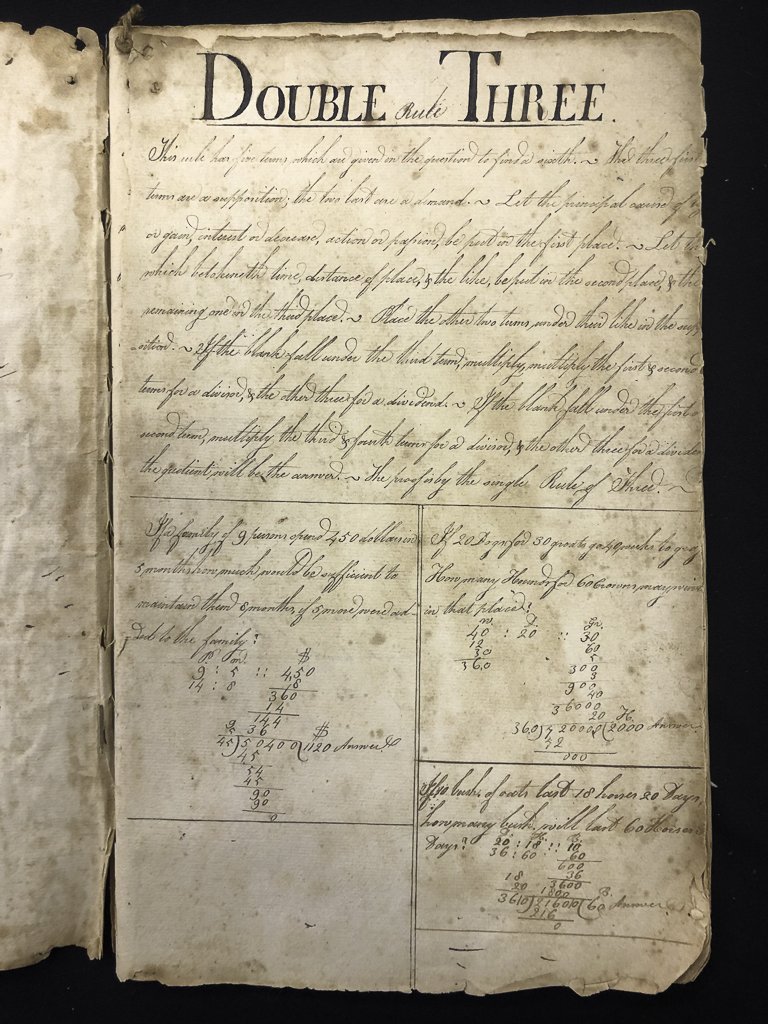 DOUBLE Rule THREE.
This rule has five terms which are given in the question to find a sixth. ~ The three first
terms are a supposition; the two last are a demand. ~ Let the principal cause of
or gain, interest or decrease, action or passion, be put in the first place. ~ Let
which betokeneth time, distance of place, & the like, be put in the second place, & the
remaining one in the third place. ~ Place the other two terms, under their like in the supp
osition. ~ If the blank fall under the third term, multiply, multiply the first & second
terms for a divisor, & the other three for a dividend. ~ If the blank fall under the first or
second term, multiply the third & fourth terms for a divisor, & the other three for a dividen
the quotient, will be the answer. ~ The proof is by the single Rule of Three. ~
If a family of 9 persons spend 450 dollars in
5 months how much would be sufficient to
maintain them 8 months, if 5 more were ad-
ded to the family?
P. m. $
9 : 5 :: 450
14 : 8 8
360
14
144
9 36 $
5
45)50400(1120 Answer
45
54
45
90
90
0
If 20 for 30 groats go 40 weeks to
How many for 60 Crowns, may
in that place?
40 : 20 :: 30
12 60
30 5
360 300
3
900
40
36000
20 H.
360)720000(2000 Answer
72
000
If 10 bush. of oats last 18 horses 20 Days,
how many bush. will last 60 Horses
Days?
20 : 18 :: 10
36 : 60 60
600
18 36
20 3600
1800 B.
360)21600(60 Answer
216
0